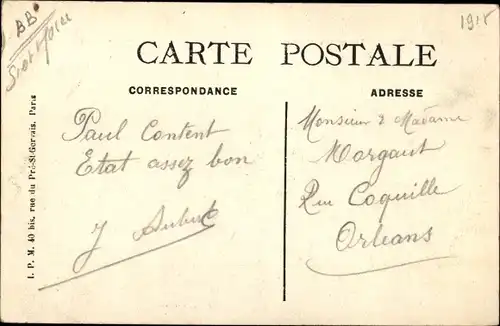 BB
1915
CARTE POSTALE
CORRESPONDANCE
ADRESSE
Paul Content
Etat assez bon
J Aubert
Monsieur & Madame
Morgaut
Rue Coquille
Orleans
I. P. M. 40 bis, rue du Pré-St-Gervais, Paris